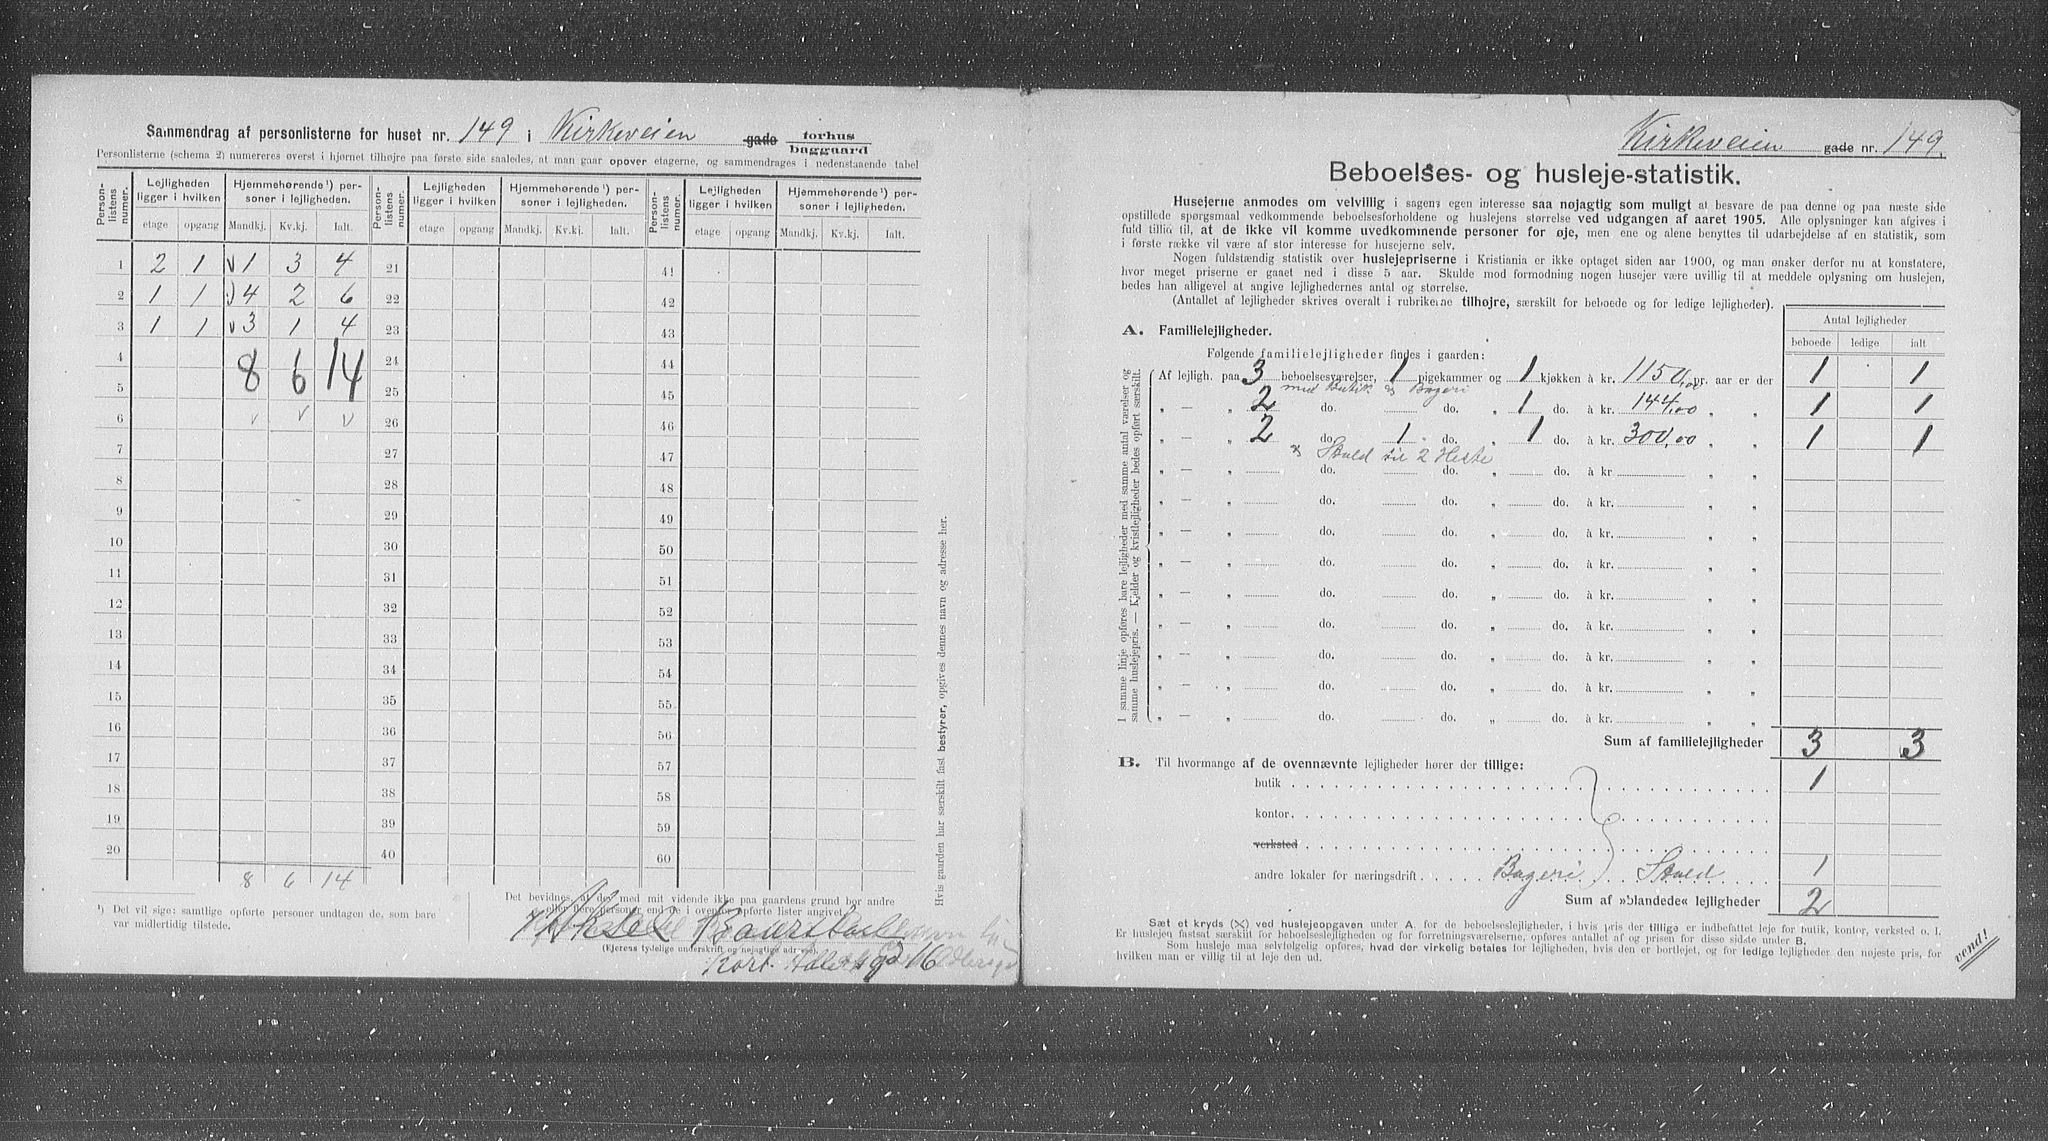 Sammendrag af personlisterne for huset nr. 149 i Kirkeveien gade forhus baggaard
Personlisterne (schema 2) numereres øverst i hjørnet tilhøjre paa første side saaledes, at man gaar opover etagerne, og sammendrages i nedenstaaende tabel
Person-listens numer. Lejligheden ligger i hvilken Hjemmehørende¹) personer i lejligheden. Person-listens numer. Lejligheden ligger i hvilken Hjemmehørende¹) personer i lejligheden. Person-listens numer. Lejligheden ligger i hvilken Hjemmehørende¹) personer i lejligheden.
etage opgang Mandkj. Kv.kj. Ialt. etage opgang Mandkj. Kv.kj. Ialt. etage opgang Mandkj. Kv.kj. Ialt.
1 2 1 v 1 3 4 21 41
2 1 1 4 2 6 22 42
3 1 1 v 3 1 4 23 43
4 8 6 14 24 44
5 25 45
6 v v v 26 46
7 27 47
8 28 48
9 29 49
10 30 50
11 31 51
12 32 52
13 33 53
14 34 54
15 35 55
16 36 56
17 37 57
18 38 58
19 39 59
20 40 60
8 6 14
¹) Det vil sige: samtlige opførte personer undtagen de, som bare var midlertidig tilstede.
Det bevidnes, at der med mit vidende ikke paa gaardens grund bor andre
eller flere personer end de i ovenfor opførte lister angivet.
Aksel
(Ejerens tydelige underskrift og nøjagtige adresse).
Kort Adelersgd 16
Hvis gaarden har særskilt fast bestyrer, opgives dennes navn og adresse her.
Kirkeveien gade nr. 149.
Beboelses- og husleje-statistik.
Husejerne anmodes om velvillig i sagens egen interesse saa nøjagtig som muligt at besvare de paa denne og paa næste side
opstillede spørgsmaal vedkommende beboelsesforholdene og huslejens størrelse ved udgangen af aaret 1905. Alle oplysninger kan afgives i
fuld tillid til, at de ikke vil komme uvedkommende personer for øje, men ene og alene benyttes til udarbejdelse af en statistik, som
i første række vil være af stor interesse for husejerne selv.
Nogen fuldstændig statistik over huslejepriserne i Kristiania er ikke optaget siden aar 1900, og man ønsker derfor nu at konstatere,
hvor meget priserne er gaaet ned i disse 5 aar. Skulde mod formodning nogen husejer være uvillig til at meddele oplysning om huslejen,
bedes han alligevel at angive lejlighedernes antal og størrelse.
(Antallet af lejligheder skrives overalt i rubrikerne tilhøjre, særskilt for beboede og for ledige lejligheder).
Antal lejligheder
beboede ledige ialt
A. Familielejligheder.
Følgende familielejligheder findes i gaarden:
I samme linje opføres bare lejligheder med samme antal værelser og samme huslejepris. — Kjelder og kvistlejligheder bedes opført særskilt.
Af lejligh. paa 3 beboelsesværelser, 1 pigekammer og 1 kjøkken à kr. 1150,00 pr. aar er der 1 1
med Butik & Bageri
„ — „ 2 do. do. „ 1 do. à kr. 144,00 „ „ 1 1
„ — „ 2 do. 1 do. „ 1 do. à kr. 300,00 „ „ 1 1
& Stald til 2 Heste
„ — „ do. do. „ do. à kr. „ „
„ — „ do. do. „ do. à kr. „ „
„ — „ do. do. „ do. à kr. „ „
„ — „ do. do. „ do. à kr. „ „
„ — „ do. do. „ do. à kr. „ „
„ — „ do. do. „ do. à kr. „ „
„ — „ do. do. „ do. à kr. „ „
„ — „ do. do. „ do. à kr. „ „
„ — „ do. do. „ do. à kr. „ „
Sum af familielejligheder 3 3
B. Til hvormange af de ovennævnte lejligheder hører der tillige:
butik 1
kontor
verksted
andre lokaler for næringsdrift Bageri Stald 1
Sum af »blandede« lejligheder 2
Sæt et kryds (×) ved huslejeopgaven under A. for de beboelseslejligheder, i hvis pris der tillige er indbefattet leje for butik, kontor, verksted o. l.
Er huslejen fastsat særskilt for beboelseslejligheden og for forretningsværelserne, opføres antallet af og prisen for disse sidste under B.
Som husleje maa selvfølgelig opføres, hvad der virkelig betales for lejligheden, hvis den er bortlejet, og for ledige lejligheder den nøjeste pris, for
hvilken man er villig til at leje den ud.
vend!